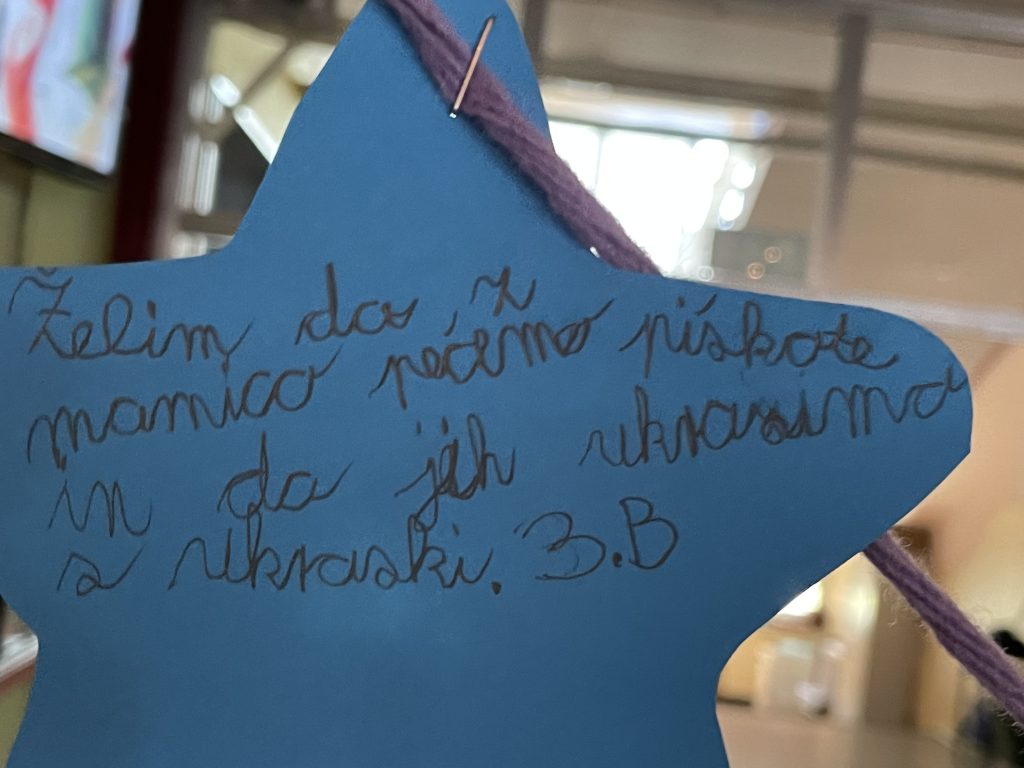 Želim da z
mamico pečemo piškote
in da jih ukrasimo
z ukraski. 3.B